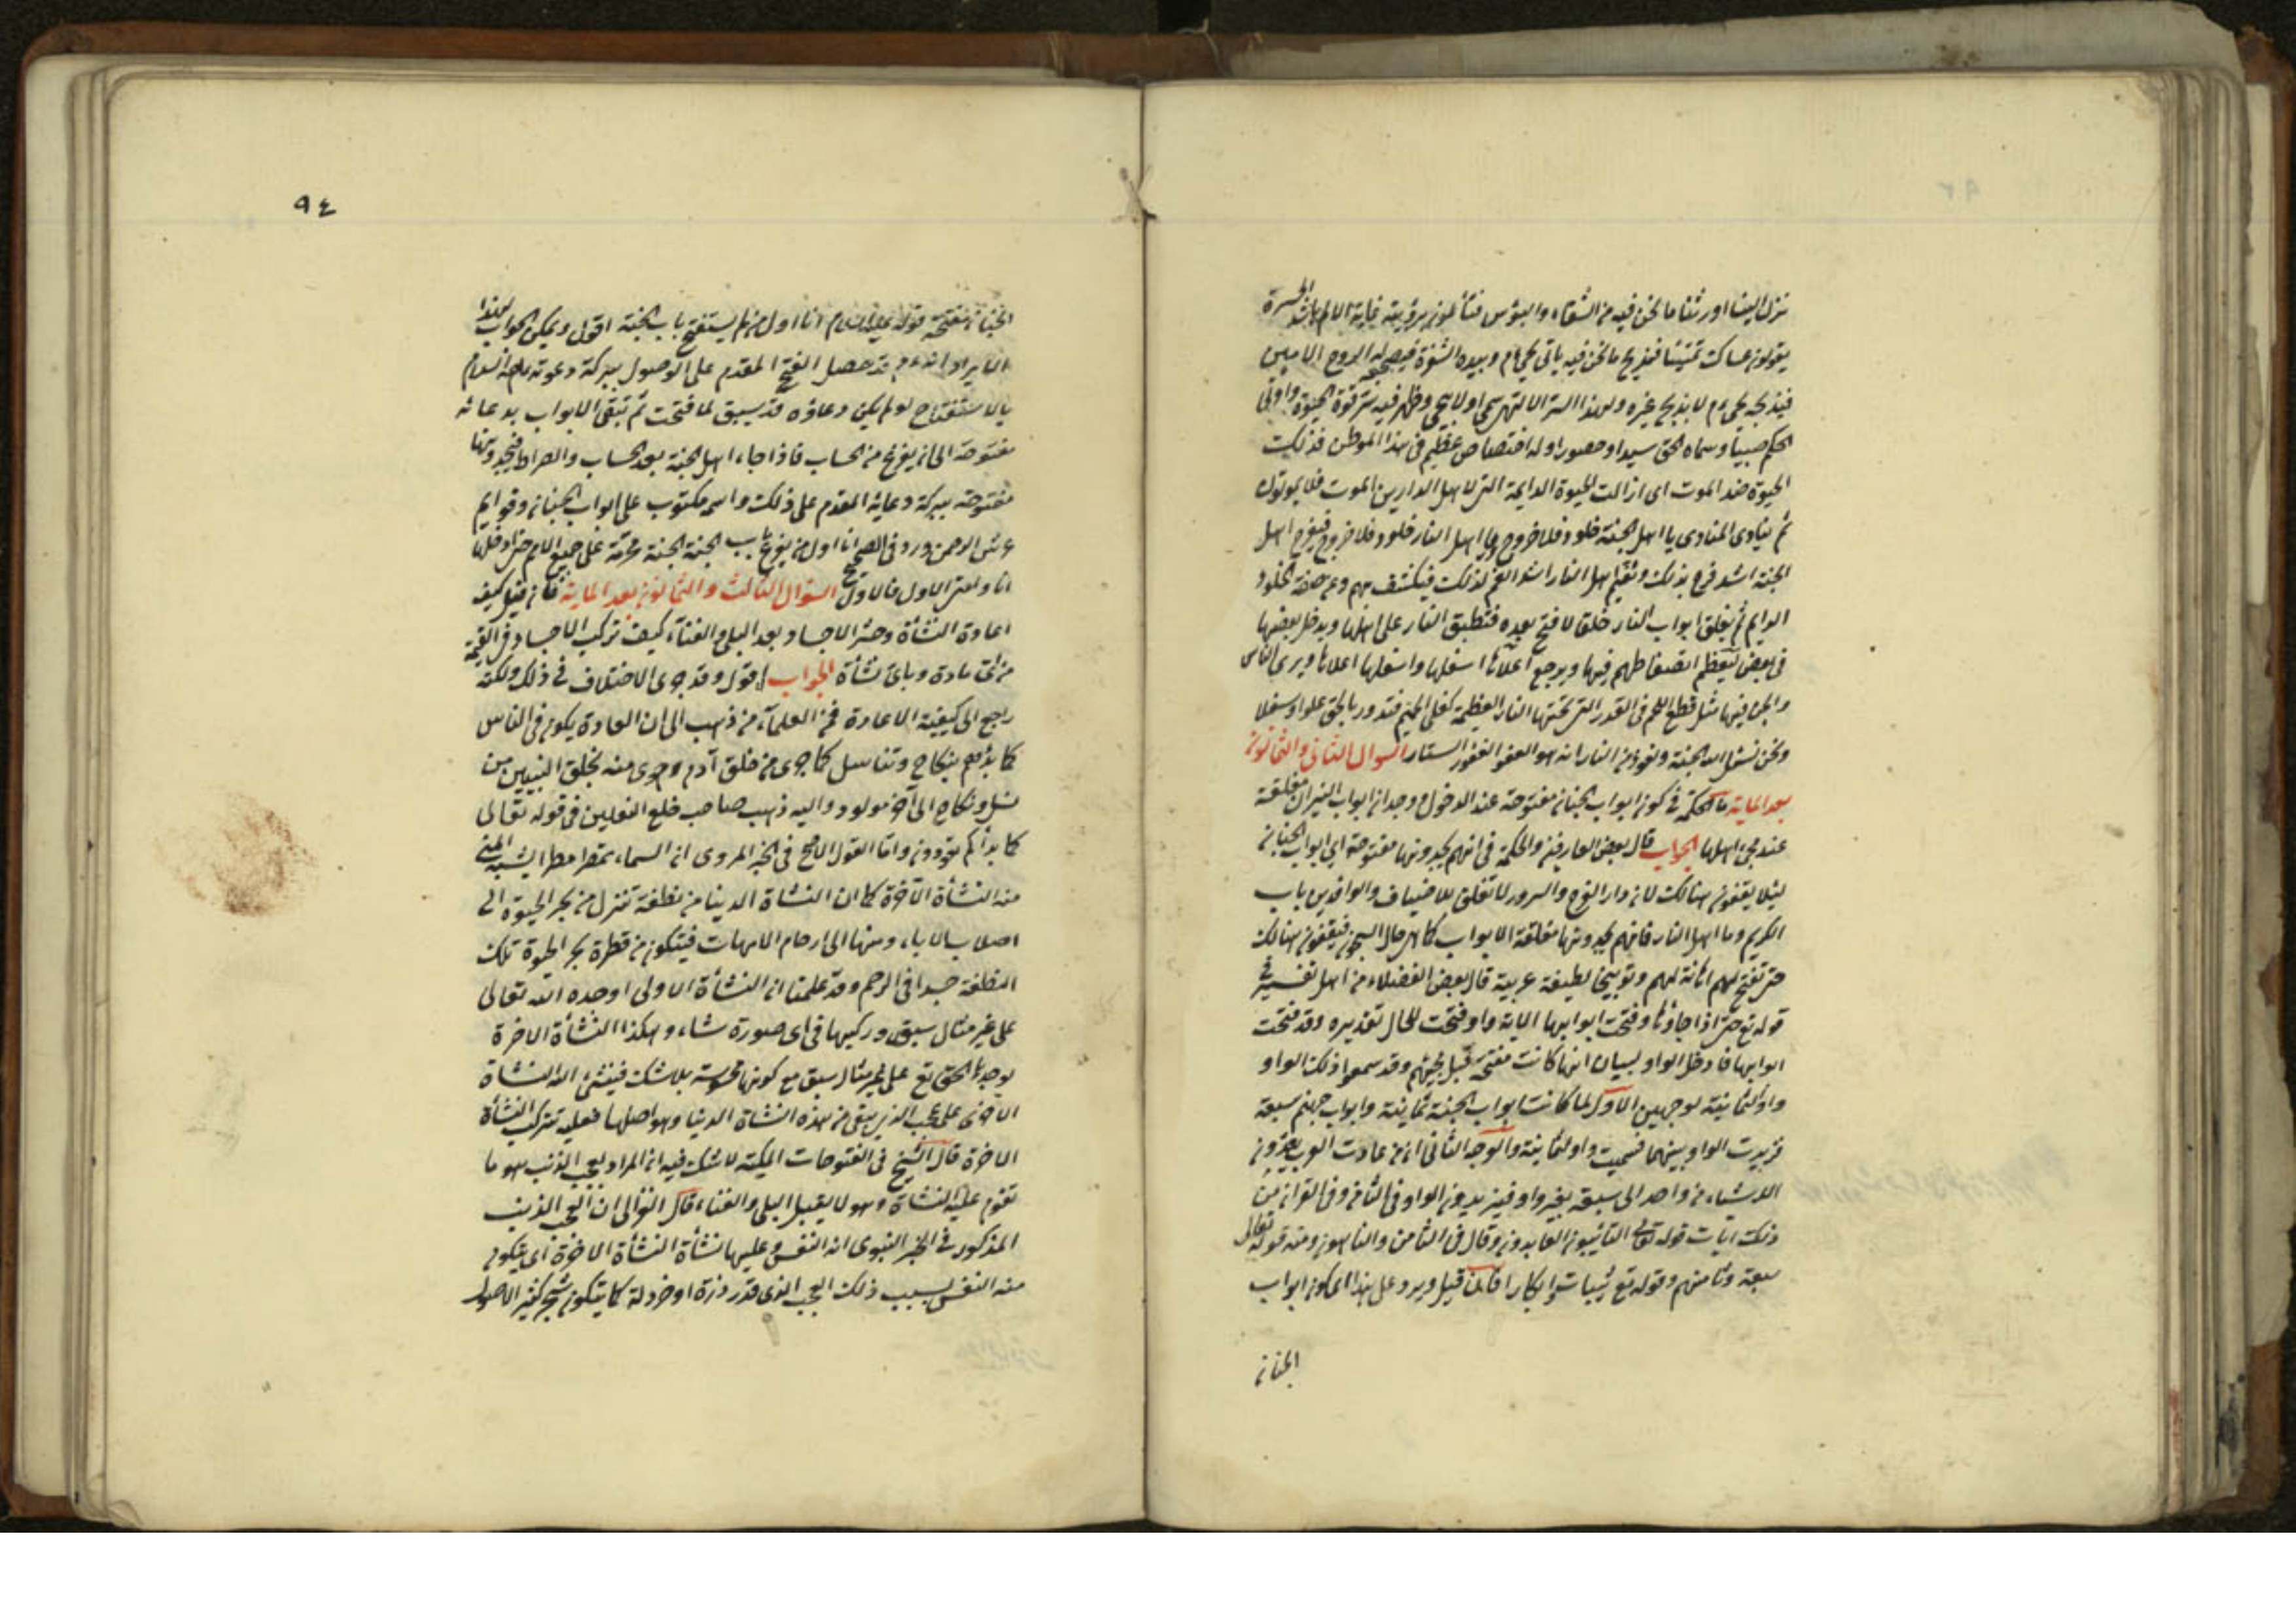 نزل الينا اورثنا ما نحن فيه من الشقاء والبؤس فتألمون برؤيته غاية الالم واشد الحسرة
يقولون عساك تميتنا فنزيح ما نحن فيه ياتى يحيى وبيده الشفرة فيضجعه الروح الامين
فيذبحه يحيى لا يذبح غيره ولهذا السر الالهى سمى اولا يحيى وظهر فيه سر قوة الحيوة واوتى
الحكم صبيا وسماه الحق سيدا وحصورا وله اختصاص عظيم فى هذا الموطن فذلك
الحيوة ضد الموت اى ازالت الحيوة الدايمة التى لاهل الدارين الموت فلا يموتون
ثم ينادى المنادى يا اهل الجنة خلود فلا خروج ويا اهل النار خلود فلا خروج فيفرح اهل
الجنة اشد فرح بذلك وتغتم اهل النار اشد الغم لذلك فيكشف بهم وعم صفة الخلود
الدايم ثم يغلق ابواب النار غلقا لا فتح بعده فتطبق النار على اهلها ويدخل بعضها
فى بعض ليعظم انضغاطهم فيها ويرجع اعلاها اسفلها واسفلها اعلاها ويرى الناس
والجن فيها مثل قطع اللحم فى القدر التى تحتها النار العظيمة كغلى الحميم فتدور بالخلق علوا وسفلا
ونحن نسئل الله الجنة ونعوذ من النار انه هو العفو الغفور الستار السوال الثانى والثمانون
بعد الماية ما الحكمة فى كون ابواب الجنان مفتوحة عند الدخول ووجدان ابواب النيران مغلقة
عند مجئ اهلها الجواب قال بعض العارفين والحكمة فى انهم يجدونها مفتوحة اى ابواب الجنان
ليلا يقفون هنالك لان دار الفرح والسرور لا تغلق للاضياف والوافدين باب
الكريم وما اهل النار فانهم يجدونها مغلقة الابواب كما هى حال السجون فيقفون هنالك
حتى تفتح لهم اهانة لهم وتوبيخا لطيفة عربية قال بعض الفضلاء من اهل تفسير فى
قوله تع حتى اذا جاؤها وفتحت ابوابها الاية واو فتحت للحال تقديره وقد فتحت
ابوابها فادخل الواو لبيان انها كانت مفتحة قبل مجيئهم وقد سموا ذلك الواو
واو الثمانية لوجهين الاول لما كانت ابواب الجنة ثمانية وابواب جهنم سبعة
فزيدت الواو بينهما فسميت واو الثمانية والوجه الثانى ان من عادت العرب يعدون
الاشياء من واحد الى سبعة بغير واو فيزيدون الواو فى الثامن وفى القران من
ذلك ايات قوله تعالى التائبون العابدون وقال فى الثامن والناهون ومنه قوله تعالى
سبعة وثامنهم وقوله تع ثيبات وابكارا فان قيل ويرد على هذا اى كون ابواب
الجنان
٩٤
الجنان مفتحة قوله عليه السلام انا اول من يستفتح باب الجنة اقول ويمكن الجواب لهذا
الايراد انه قد حصل الفتح المقدم على الوصول ببركة دعوته عليه السلام
بالاستفتاح لو لم يكن دعاؤه قد سبق لما فتحت ثم تبقى الابواب بدعائه
مفتوحة الى ان يفرغ من الحساب فاذا جاء اهل الجنة بعد الحساب والصراط فيجدونها
مفتوحة ببركة دعايه المقدم على ذلك واسمه مكتوب على ابواب الجنان وقوايم
عرش الرحمن وورد فى الصحيح انا اول من يقرع باب الجنة الجنة محرمة على جميع الامم حتى ادخلها
انا وامتى الاول فالاول السوال الثالث والثمانون بعد الماية فان قيل كيف
اعادة النشأة وحشر الاجساد بعد البلى والفناء كيف تركب الاجساد فى القيمة
من اى مادة وباى نشأة الجواب اقول وقد جرى الاختلاف فى ذلك ولكنه
رجع الى كيفية الاعادة فمن العلماء من ذهب الى ان العادة يكون فى الناس
كما بدؤهم بنكاح وتناسل كما جرى من خلق آدم وجرى منه بخلق النبيين من
نسل ونكاح الى آخر مولود واليه ذهب صاحب خلع النعلين فى قوله تعالى
كما بداكم تعودون واما القول الاصح فى الخبر المروى ان السماء تمطر مطرا يشبه المنى
منه النشأة الآخرة كما ان النشاة الدينا من نطفة تنزل من بحر الحيوة الى
اصلاب الاباء ومنها الى ارحام الامهات فيتكون من قطرة بحر الحيوة تلك
النطفة جسدا فى الرحم وقد علمنا ان النشأة الاولى اوجده الله تعالى
على غير مثال سبق وركبها فى اى صورة شاء وهكذا النشأة الاخرة
يوجدها الحق تع على غير مثال سبق مع كونها محسوسة بلا شك فينشئ الله النشاة
الاخرى على عجب الذنب يبقى من هذه النشاة الدنيا وهو اصلها فعليه تتركب النشأة
الاخرة قال الشيخ فى الفتوحات المكية لا شك فيه ان المراد بعجب الذنب هو ما
تقوم عليه النشاة وهو لا يقبل البلى والفناء قال الغزالى ان العجب الذنب
المذكور فى الخبر النبوى انه النفس وعليها نشأة النشأة الاخرة اى يتكون
منه النفس بسبب ذلك العجب الذى قدر ذرة او خردلة كما يتكون شجر كثير الاصول